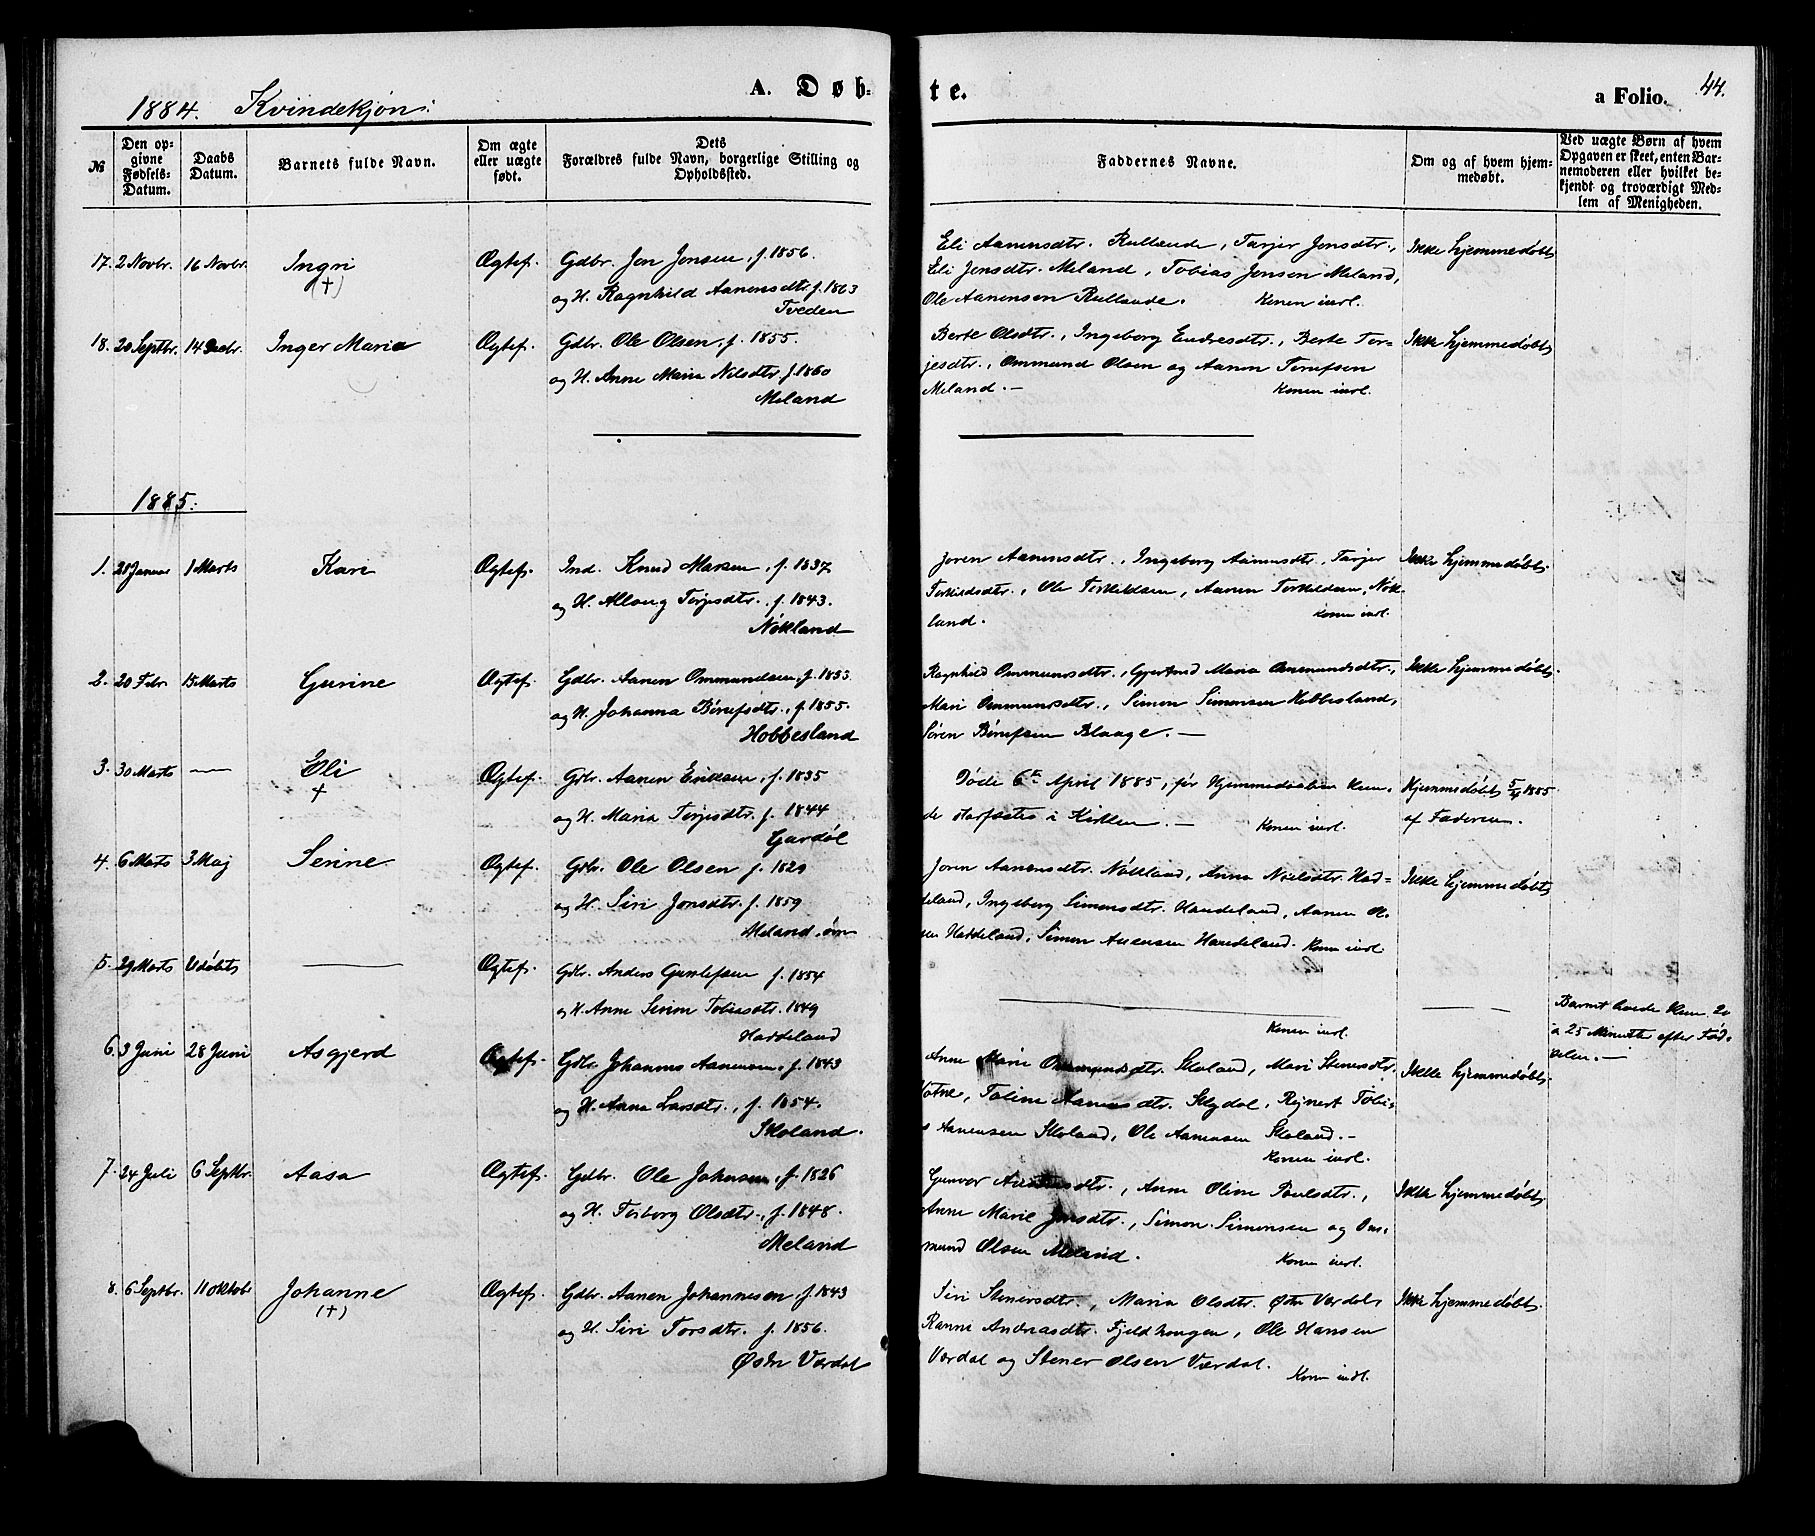 1884. Kvindekjøn:
A. Døb-
te.
a Folio.
44.
№
Den op-
givne
Fødsels-
Datum.
Daabs
Datum.
Barnets fulde Navn.
Om ægte
eller uægte
født.
Dets
Forældres fulde Navn, borgerlige Stilling og
Opholdssted.
Faddernes Navne.
Om og af hvem hjem-
medøbt.
Ved uægte Børn af hvem
Opgaven er skeet, enten Bar-
nemoderen eller hvilket be-
kjendt og troværdigt Med-
lem af Menigheden.
17. 2 Novbr. 16 Novbr. Ingri Ægtef. Gdbr. Jon Jonsen, f. 1856.
(+) og H. Ragnhild Aanensdtr. f. 1863
Tveden
Eli Aanensdtr. Rullande, Tarjer Jonsdtr., Ikke hjemmedøbt
Eli Jonsdtr. Meland, Tobias Jonsen Meland,
Ole Aanensen Rullande. Konen indl.
18. 20 Septbr. 14 Decbr. Inger Maria Ægtef. Gdbr. Ole Olsen, f. 1855.
og H. Anne Maria Nilsdtr. f. 1860
Meland
Berte Olsdtr., Ingeborg Endresdtr., Berte Ter- Ikke hjemmedøbt
jesdtr., Ommund Olsen og Aanen
Meland. — Konen indl.
1885.
1. 28 Januar 1 Marts Kari Ægtef. Ind. Knud f. 1837
og H. Allaug Terjesdtr., f. 1843.
Nökland
Joren Aanensdtr., Ingeborg Aanensdtr., Tarjer Ikke hjemmedøbt.
Terkildsdtr., Ole Terkildsen, Aanen Terkildsen, Nök-
land. Konen indl.
2. 20 Febr. 15 Marts Gurine Ægtef. Gdbr. Aanen Ommundsen, f. 1853.
og H. Johanna f. 1855.
Hobbesland
Ragnhild Ommundsdtr., Gjertrud Maria Ommundsdtr., Ikke hjemmedøbt.
Mari Ommundsdtr., Simon Simonsen Hobbesland,
Sören Blaage. —
3. 30 Marts — Eli Ægtef. Gdbr. Aanen Eriksen, f. 1835
+ og H. Maria Terjesdtr. f. 1844
Gardöl
Döde 6te April 1885, för Hjemmedaaben kun- Hjemmedøbt 5/4 1885
de i Kirken. — Konen indl. af Faderen.
4. 6 Marts 3 Maj Serine Ægtef. Gdbr. Ole Olsen f. 1829
og H. Siri Jonsdtr. f. 1859
Meland
Joren Aanensdtr. Nökland, Anna Nielsdtr. Had- Ikke hjemmedøbt
deland, Ingeborg Simonsdtr. Haudeland, Aanen Ol-
sen Haddeland, Simon Haudeland. Konen indl.
5. 29 Marts Udöbt — Ægtef. Gdbr. Anders Gunlefsen f. 1854
og H. Anne Serine Tobiasdtr. 1849
Haddeland
— Konen indl. —
Barnet levede kun 20
a 25 Minutter efter Föd-
selen. —
6. 3 Juni 28 Juni Asgjerd Ægtef. Gdbr. Johannes Aanensen, f. 1843
og H. Anna Larsdtr., f. 1854.
Skoland.
Anne Marie Ommundsdtr. Skoland, Mari Stenersdtr. Ikke hjemmedøbt.
Votne, Toline Aanensdtr. Rejnert Tobi-
s Aanensen Skoland, Ole Aanensen Skoland. —
Konen indl.
7. 24 Juli 6 Septbr. Aasa Ægtef. Gdbr. Ole Johnsen, f. 1826
og H. Torborg Olsdtr., f. 1848.
Meland
Gunvor Anne Oline Poulsdtr., Ikke hjemmedøbt.
Anne Marie Jonsdtr., Simon Simonsen og Om-
mund Olsen Meland. Konen indl.
8. 6 Septbr. 11 Oktobr Johanne Ægtef. Gdbr. Aanen Johannesen f. 1843
(+) og H. Siri Torsdtr. f. 1856.
Østre Værdal
Siri Stenersdtr., Maria Olsdtr. Østre Værdal, Ikke hjemmedøbt.
Ranni Andreasdtr. Fjeldhougen, Ole Hansen
Værdal og Stener Olsen Værdal. Konen indl.